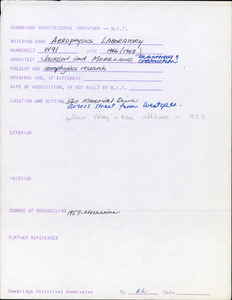 CAMBRIDGE ARCHITECTURAL INVENTORY -- M.I.T.
BUILDING NAME Aerophysics Laboratory
NUMBER(S) W91 DATE
ARCHITECT Jackson and Moreland
PRESENT USE aerophysics research
ORIGINAL USE, IF DIFFERENT
DATE OF ACQUISITION, IF NOT BUILT BY M.I.T.
LOCATION AND SETTING 560 Memorial Drive
across street from Westgate.
1957
EXTERIOR
INTERIOR
DEGREE OF REMODELLING 1957
FURTHER REFERENCES
Cambridge Historical Commission By Date